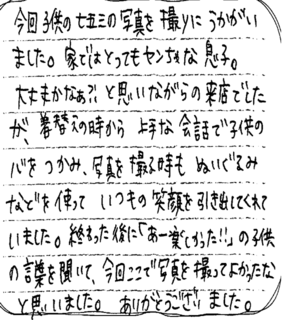 今回子供の七五三の写真を撮りにうかがい
ました。家ではとってもヤンチャな息子。
大丈夫かなぁ?!と思いながらの来店でした
が、着替えの時から上手な会話で子供の
心をつかみ、写真を撮る時もぬいぐるみ
などを使っていつもの笑顔を引き出してくれて
いました。終わった後に「あー楽しかった!!」の子供
の言葉を聞いて、今回ここで写真を撮ってよかったな
と思いました。ありがとうございました。